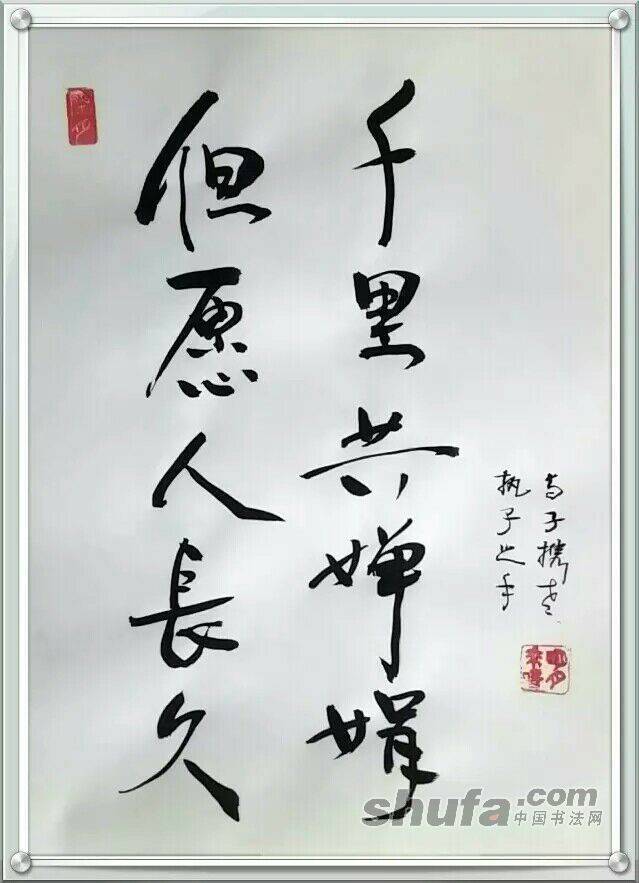 但愿人長久
千里共婵娟
执子之手
与子携老
shufa.com
中国书法网